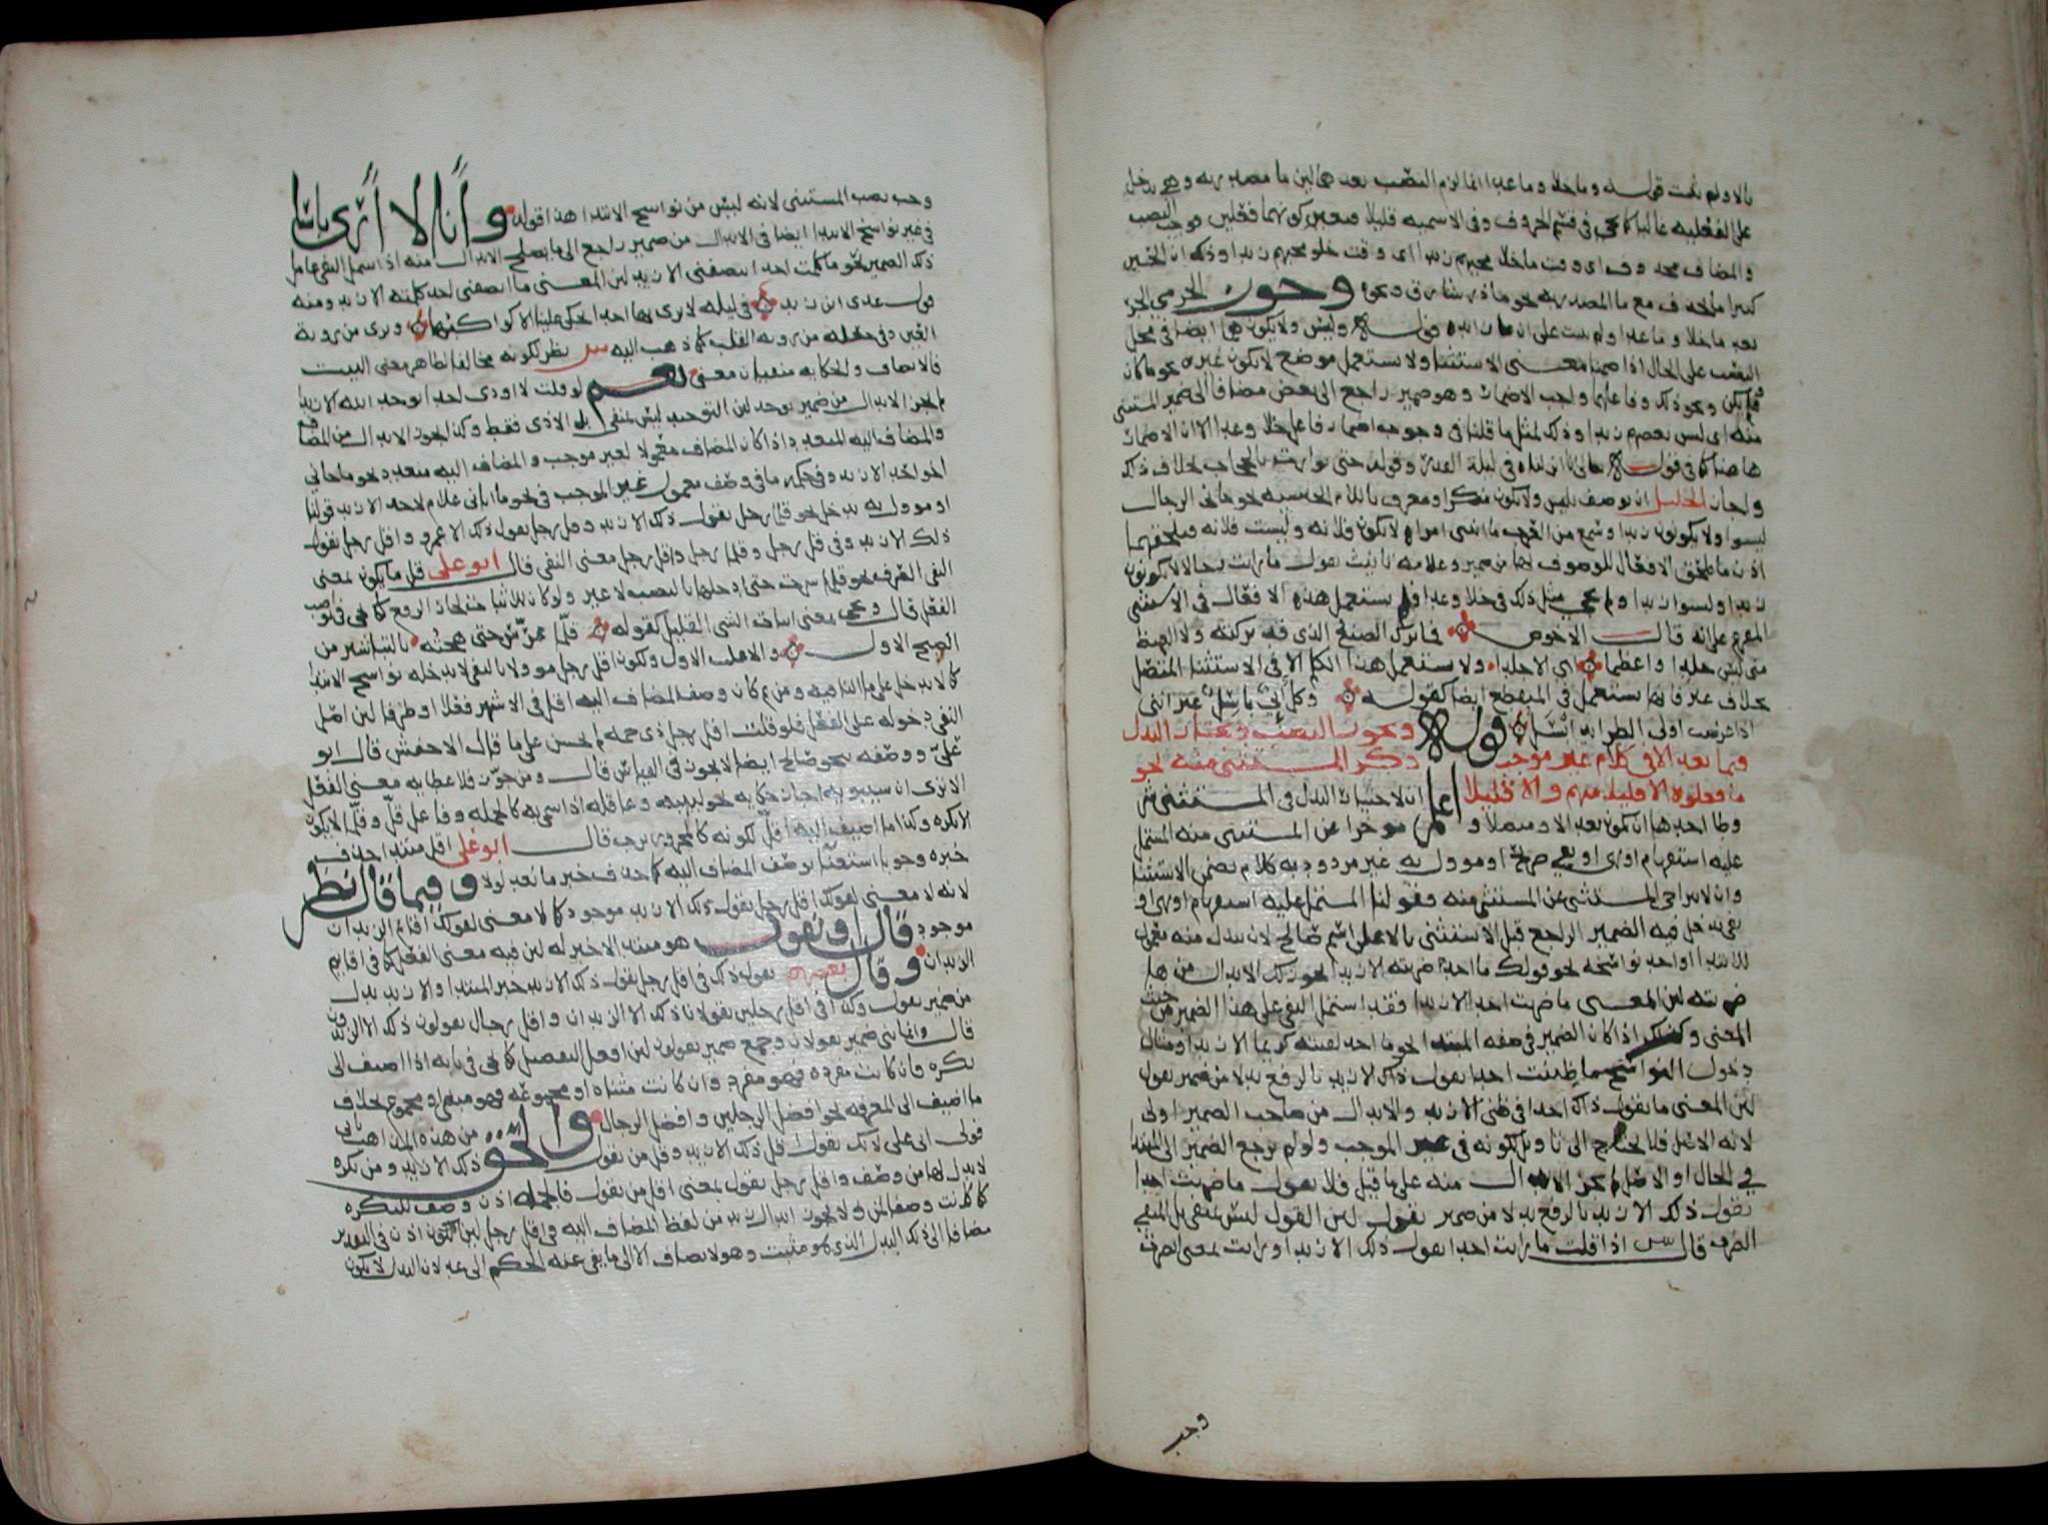 بالا ولم يثبت قوله وما خلا وما عدا انما لزم النصب بعدهما لان ما مصدرية وهي تدخل
على الفعلية غالبا كما يجي في قسم الحروف وفي الاسمية قليلا فتعين كونهما فعلين فوجب النصب
والمضاف محذوف اي وقت ما خلا مجيهم زيدا اي وقت خلو مجيهم زيدا وذلك ان الحين
كثيرا ما يحذف مع ما المصدرية نحو ما ذر شارق ونحوه وجوز الجرمي الجر
بعد ما خلا وما عدا ولم يثبت على ان ما زايدة قوله وليس ولا يكون هما ايضا في محل
النصب على الحال اذا ضمنا معنى الاستثنا ولا يستعمل موضع لا يكون غيره نحو ما كان
ولم يكن ونحو ذلك وفاعلهما واجب الاضمار وهو ضمير راجع الى بعض مضافا الى ضمير المستثنى
منه اي ليس بعضهم زيدا وذلك لمثل ما قلنا في وجوب اضمار فاعل خلا وعدا الا ان الاضمار
هاهنا كما في قوله تعالى انا انزلناه في ليلة القدر وقوله حتى توارت بالحجاب بخلاف ذلك
واجاز الخليل ان يوصف بليس ولا يكون منكر او معرف باللام الجنسية نحو جاني الرجال
ليسوا ولا يكونون زيدا وسمع من العرب ما اتتني امراة لا يكون فلانة وليست فلانة فيلحقهما
اذن ما يلحق الافعال للموصوف بها من ضمير وعلامة تانيث تقول ما رايت رجالا لا يكونون
زيدا وليسوا زيدا ولم يجي مثل ذلك في خلا وعدا ولم يستعمل هذه الافعال في الاستثنى
المفرغ على انه قال الاحوص فما ترك الصنع الذي قد تركته ولا الغيظ
مني ليس جلدا واعظما اي الا جلدا ولا يستعمل هذا الكلم الا في الاستثنا المتصل
بخلاف غير فانها يستعمل في المنقطع ايضا كقوله وكل ابي باسل غير انني
اذا عرضت اولى الطرايد ابسل قوله ويجوز النصب ويختار البدل
فيما بعد الا في كلام غير موجب ذكر المستثنى منه نحو
ما فعلوه الا قليل منهم والا قليلا اعلم ان لاختيار البدل في المستثنى
شروطا احدها ان يكون بعد الا ومتصلا وموخرا عن المستثنى منه المشتمل
عليه استفهام او نهي او نفي صريح او موول به غير مردود به كلام تضمن الاستثنا
وان لا يتراخى المستثنى عن المستثنى منه فقولنا المشتمل عليه استفهام او نهي او
نفي يدخل فيه الضمير الراجع قبل الاستثنى بالا على اسم صالح لان يبدل منه معمول
للابتدا او احد نواسخه نحو قولك ما احد ضربته الا زيدا يجوز لك الابدال من ها
ضربته لان المعنى ما ضربت احدا الا زيدا فقد اشتمل النفي على هذا الضمير من حيث
المعنى وكذلك اذا كان الضمير في صفة المبتدا نحو ما احد لقيته كريما الا زيدا ومثال
دخول النواسخ ما ظننت احدا يقول ذلك الا زيد بالرفع بدلا من ضمير يقول
لان المعنى ما يقول ذلك احد في ظني الا زيد والابدال من صاحب الضمير اولى
لانه الاصل فلا يحتاج الى تاويل لكونه في غير الموجب ولو لم يرجع الضمير الى المبتدا
في الحال او الاصل لم يجز الابدال منه على ما قيل فلا تقول ما ضربت احدا
يقول ذلك الا زيد بالرفع بدلا من ضمير يقول لان القول ليس بمنفي بل المنفي
الضرب قال س اذا قلت ما رايت احدا يقول ذلك الا زيدا ورايت بمعنى ابصرت
وجب
وجب نصب المستثنى لانه ليس من نواسخ الابتدا هذا قوله وانا لا ارى باسا
في غير نواسخ الابتدا ايضا في الابدال من ضمير راجع الى ما يصلح للابدال منه اذا اشمل النفي عامل
ذلك الضمير نحو ما كلمت احدا ينصفني الا زيد لان المعنى ما انصفني احد كلمته الا زيد ومنه
قول عدي بن زيد في ليلة لا نرى بها احدا يحكي علينا الا كواكبها ونرى من روية
العين وفي جعله من روية القلب كما ذهب اليه س نظر لكونه مخالفا لظاهر معنى البيت
فالانصاف والحكاية منفيان معنى نعم لو قلت لا اوذي احدا يوحد الله الا زيدا
لم يجز الابدال من ضمير يوحد لان التوحيد ليس بمنفي بل الاذى فقط وكذا يجوز الابدال من المضاف
والمضاف اليه المتعدد اذا كان المضاف معمولا لغير موجب والمضاف اليه متعدد نحو ما جاني
اخو احد الا زيد وفي حكمه ما في وصف معمول غير الموجب في نحو ما اتاني غلام لاحد الا زيد قولنا
او موول به يدخل نحو قلما رجل يقول ذلك الا زيد وقل رجل يقول ذلك الا عمرو واقل رجل يقول
ذلك الا زيد وفي قل رجل وقلما رجل واقل رجل معنى النفي قال ابو علي قل ما يكون بمعنى
النفي الصرف نحو قلما سرت حتى ادخلها بالنصب لا غير ولو كان للاثبات لجاز الرفع كما يجي في نواصب
الفعل قال ويجي بمعنى اثبات الشي القليل كقوله قلما عرس حتى هجته بالتباشير من
الصبح الاول والاغلب الاول ولكون اقل رجل موولا بالنفي لا يدخله نواسخ الابتدا
كما لا يدخل على ما النافية ومن ثم كان وصف المضاف اليه اقل في الاشهر فعلا او ظرفا لان اصل
النفي دخوله على الفعل فلو قلت اقل رجل ذي جمة لم يحسن على ما قال الاخفش قال ابو
علي ووصفه بنحو صالح ايضا لا يجوز في القياس قال ومن جوز فلاعطايه معنى الفعل
الا ترى ان سيبويه اجاز حكاية نحو لبيبة وعاقلة اذا سمي به كالجملة وفاعل قل وقلما لا يكون
الا نكرة وكذا ما اضيف اليه اقل لكونه كالمجرور برب قال ابو علي اقل مبتدا حذف
خبره وجوبا استغنا بوصف المضاف اليه كما حذف خبر ما بعد لولا وفيما قال نظر
لانه لا معنى لقولك اقل رجل يقول ذلك الا زيد موجود كما لا معنى لقولك اقايم الزيدان
موجود قال او نقول هو مبتدا لا خبر له لان فيه معنى الفعل كما في اقايم
الزيدان وقال بعضهم يقول ذلك في اقل رجل يقول ذلك الا زيد خبر المبتدا والا زيد بدل
من ضمير يقول وكذا في اقل رجلين يقولان ذلك الا الزيدان واقل رجال يقولون ذلك الا الزيدون
قال وانما ثنى ضمير يقولان وجمع ضمير يقولون لان افعل التفضيل كما يجي في بابه اذا اضيف الى
نكرة فان كانت مفردة فهو مفرد وان كانت مثناة او مجموعة فهو مثنى او مجموع بخلاف
ما اضيف الى المعرفة نحو افضل الرجلين وافضل الرجال والحق من هذه المذاهب ثاني
قولي ابي علي لانك تقول قل ذلك الا زيد وقل من يقول ذلك الا زيد ومن نكرة
لا بدل لها من وصف واقل رجل يقول بمعنى اقل من يقول فالجملة اذن وصف للنكرة
كما كانت وصفا لمن ولا يجوز ابدال زيد من لفظ المضاف اليه في اقل رجل لان يكون اذن في التقدير
مضافا الى ذلك البدل الذي هو مثبت وهو لا يضاف الا الى ما نفي عنه الحكم الى عد لان البدل لا يكون